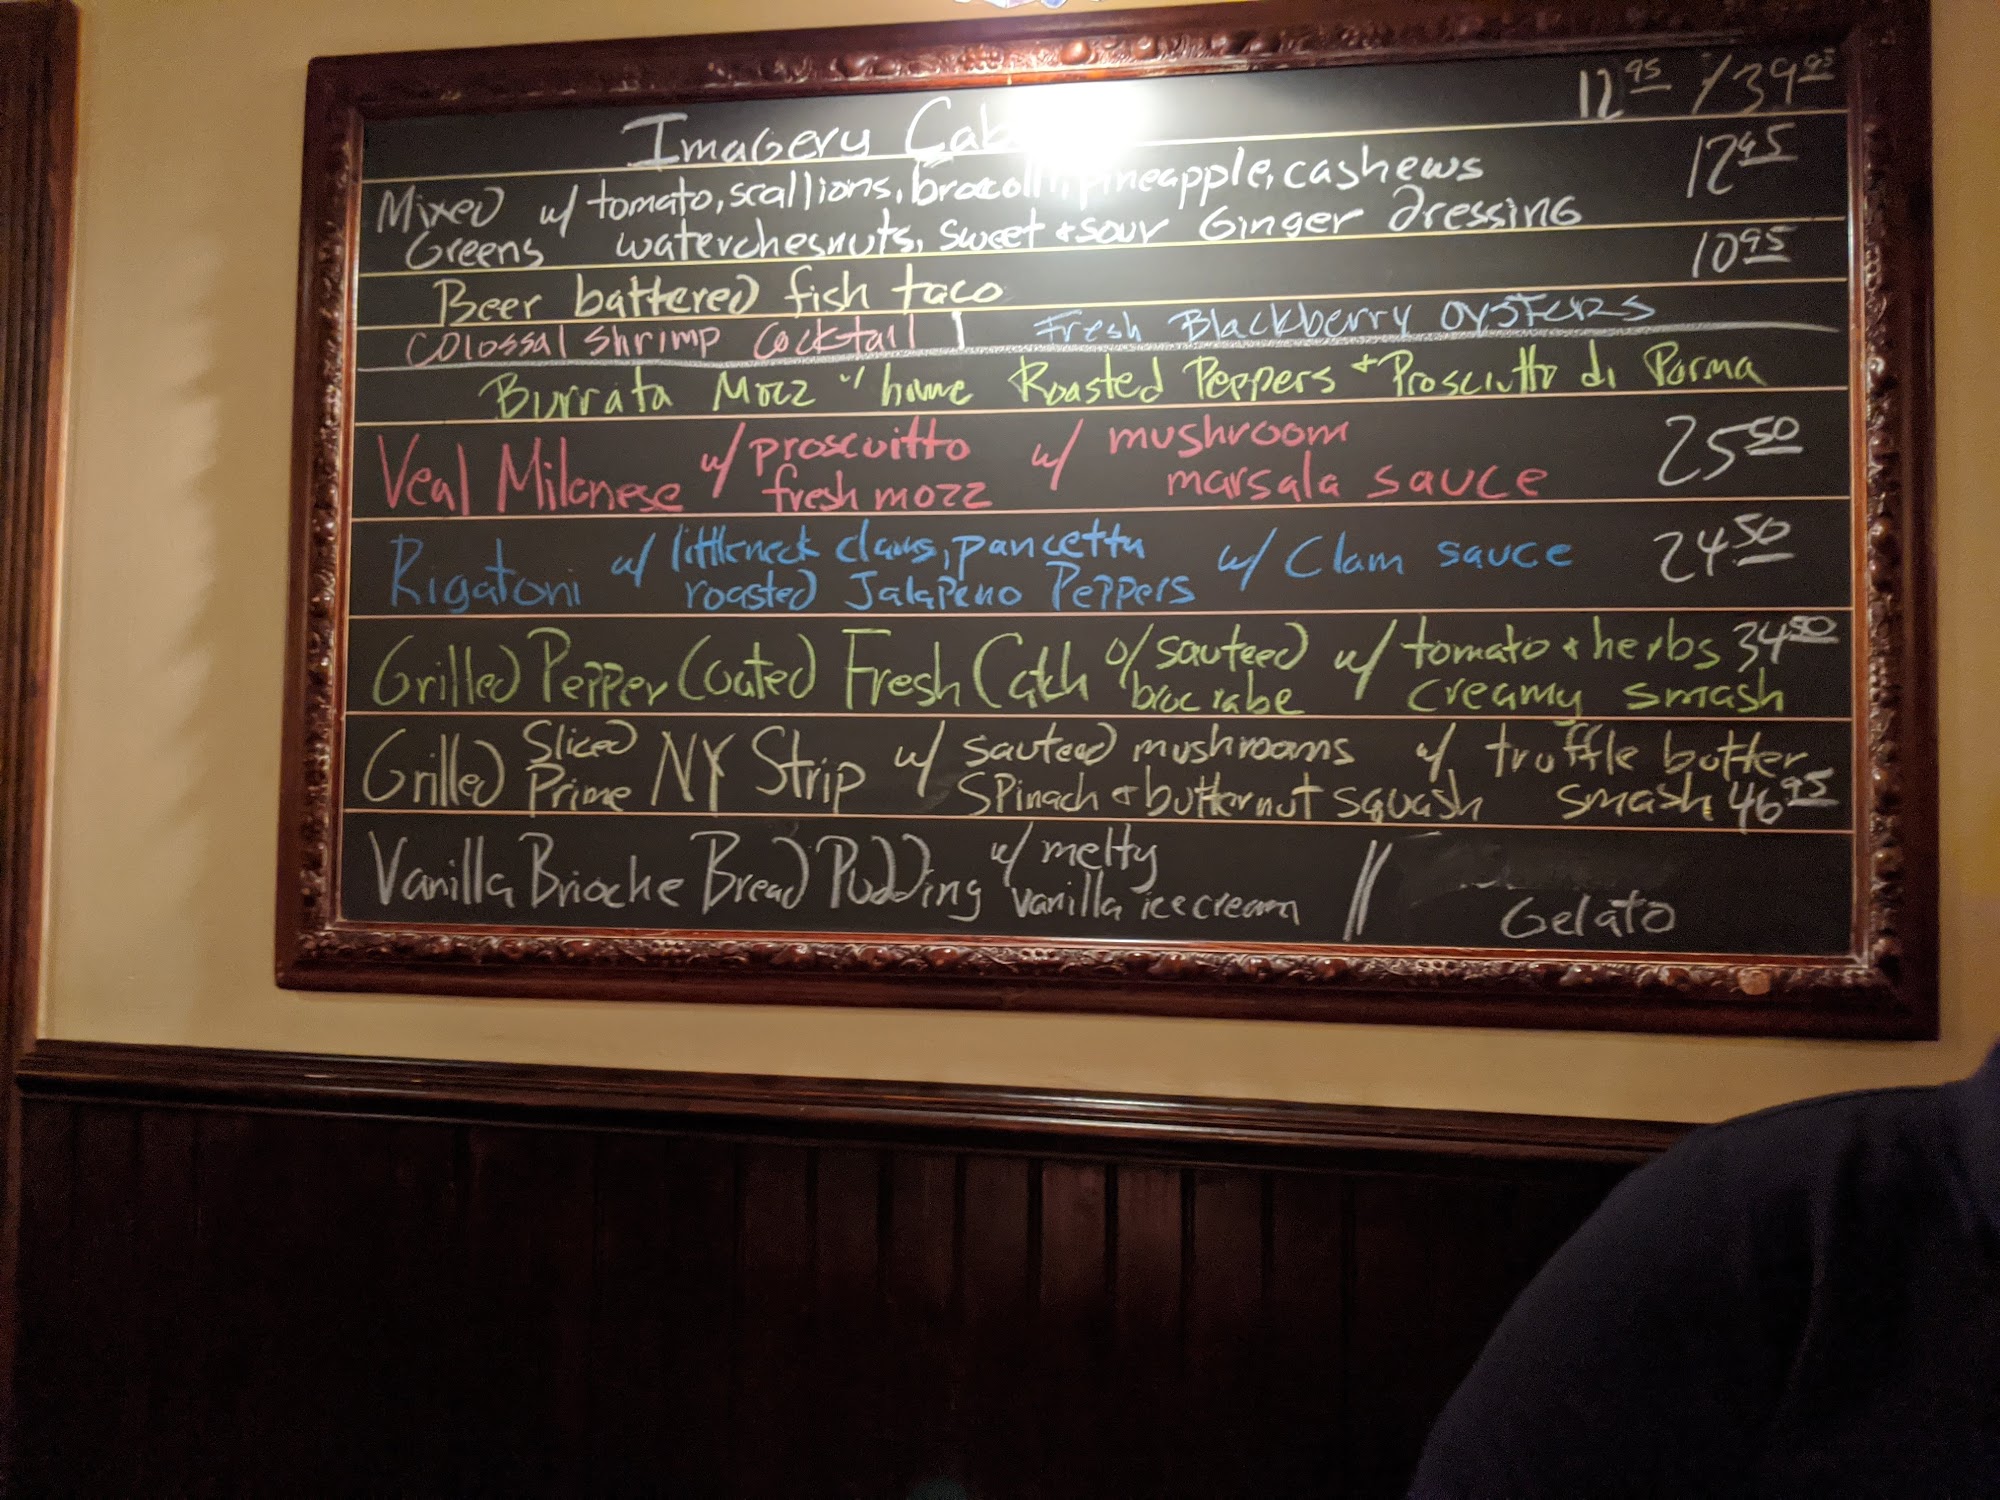 Imagery Cab 12 95 / 39 95
Mixed w/ tomato, scallions, brocolli, pineapple, cashews 12 95
Greens waterchesnuts, sweet + sour Ginger dressing
Beer battered fish taco 10 95
Colossal Shrimp Cocktail | Fresh Blackberry oysters
Burrata Mozz w/ home Roasted Peppers + Prosciutto di Parma
Veal Milanese w/ proscuitto w/ mushroom 25 50
fresh mozz marsala sauce
Rigatoni w/ littleneck clams, pancetta w/ Clam sauce 24 50
roasted Jalapeno Peppers
Grilled Pepper Coated Fresh Catch o/ sauteed w/ tomato + herbs 34 50
broc rabe creamy smash
Grilled Sliced NY Strip w/ sauteed mushrooms w/ truffle butter
Prime spinach + butternut squash smash 46 95
Vanilla Brioche Bread Pudding w/ melty //
vanilla ice cream Gelato